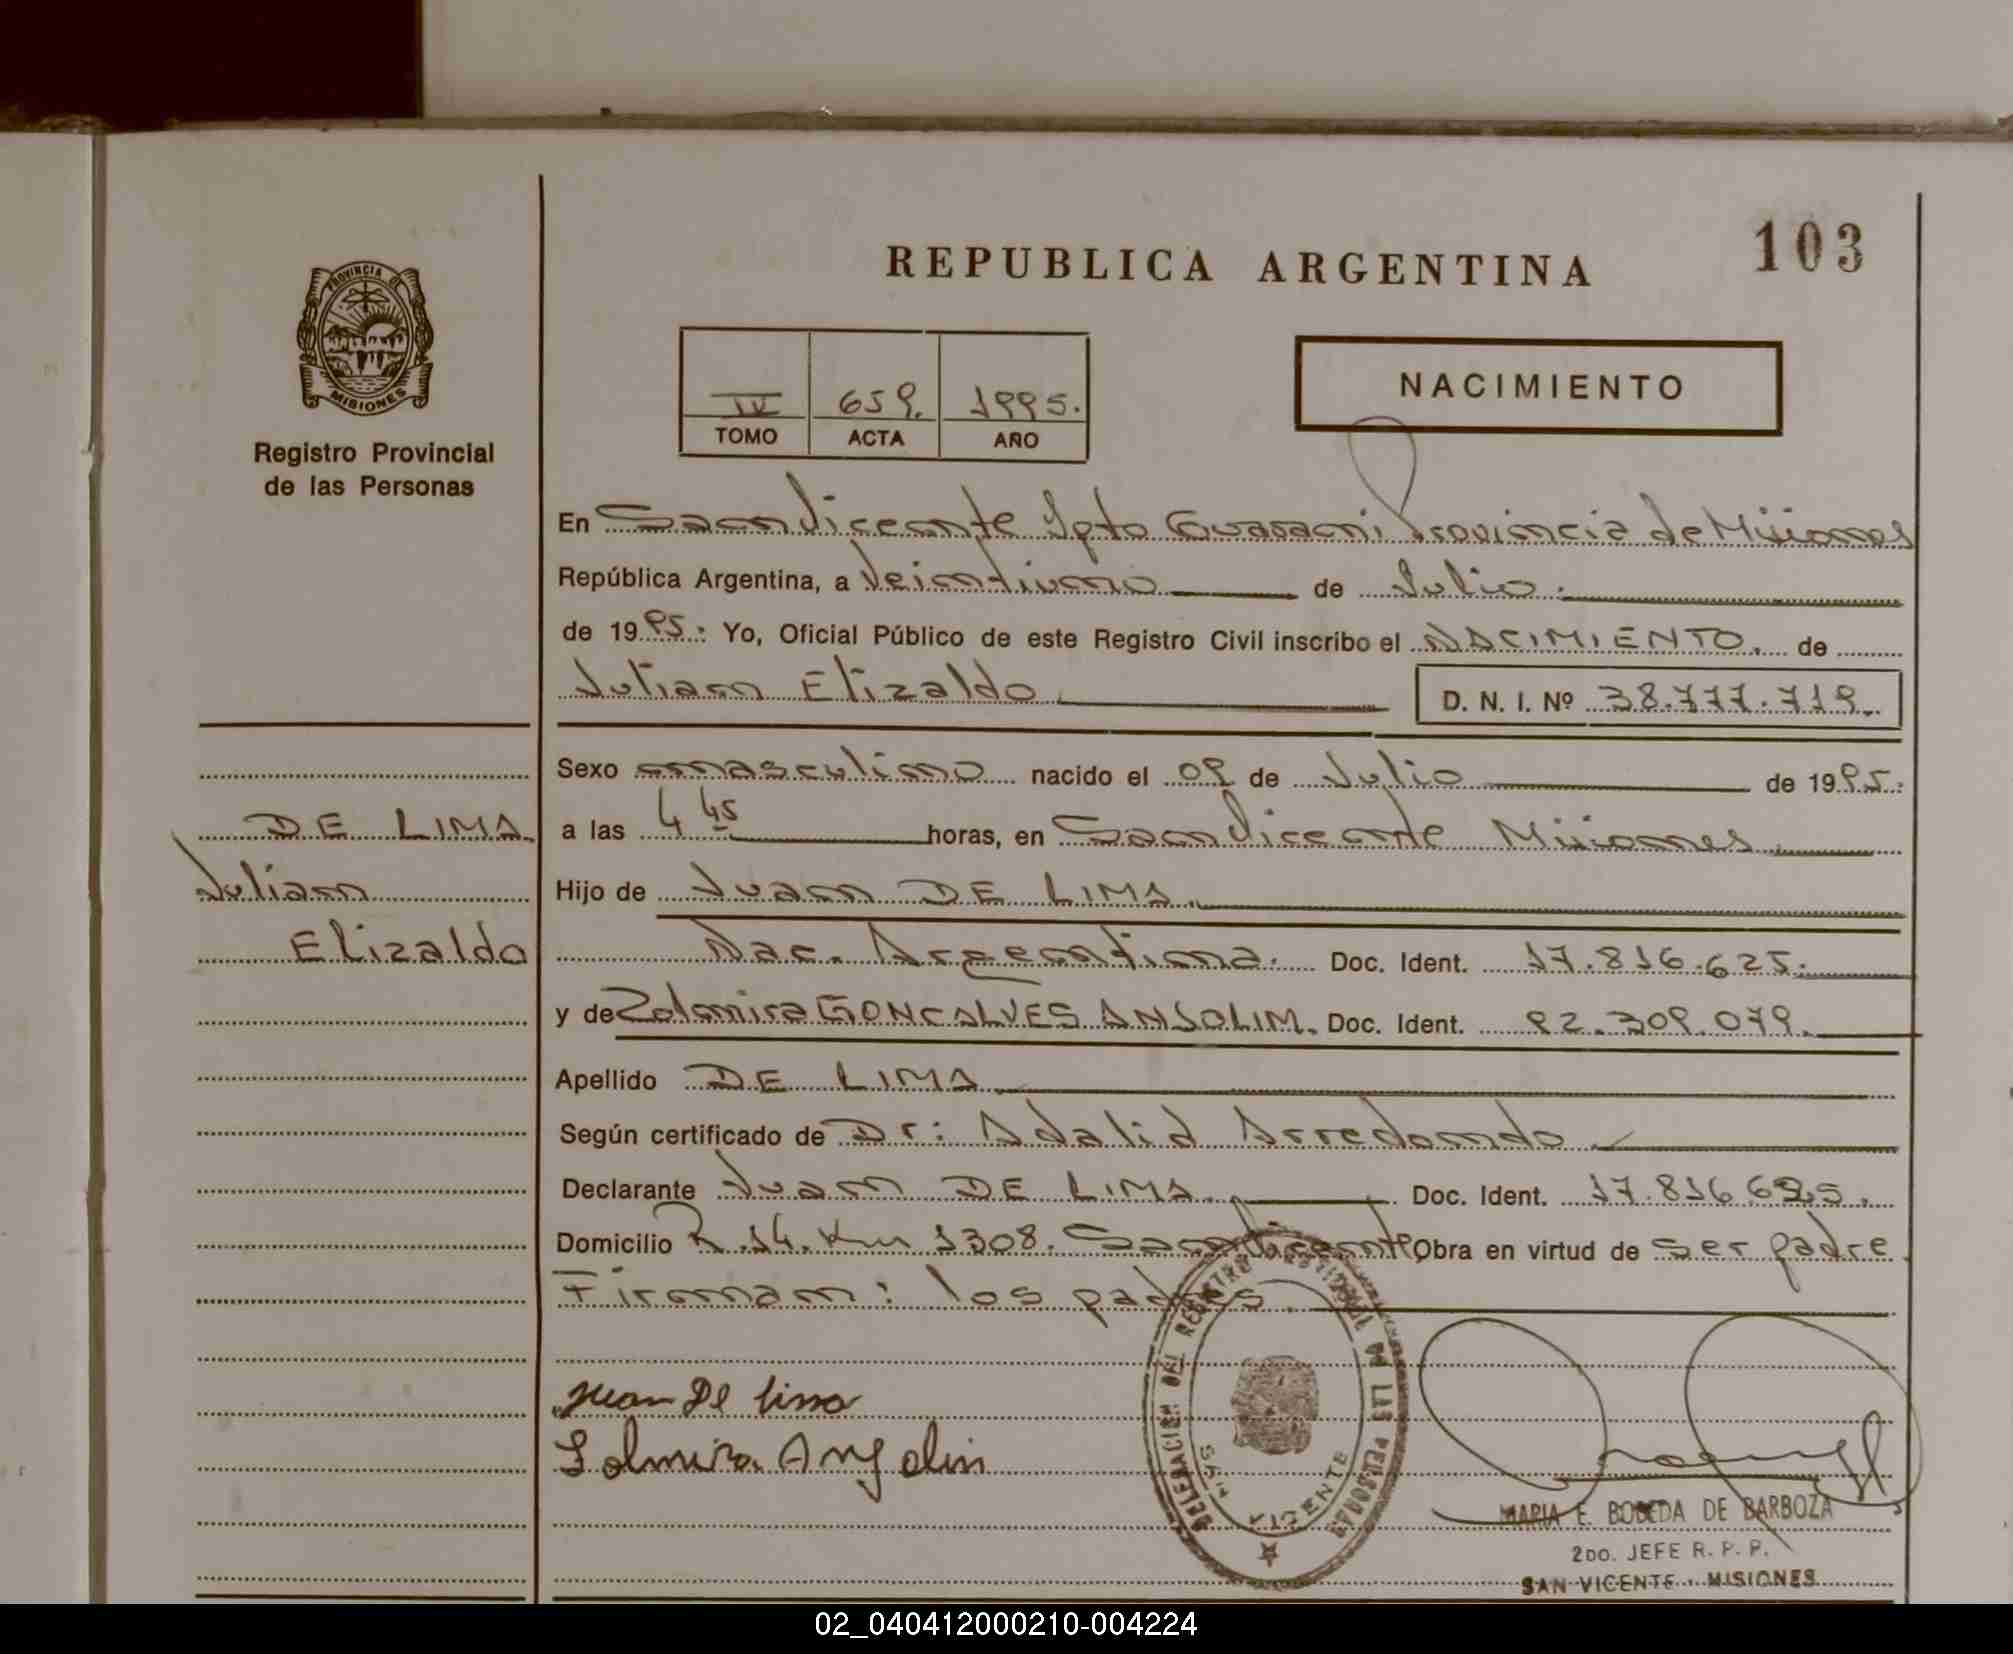 REPUBLICA ARGENTINA
103
PROVINCIA DE
MISIONES
Registro Provincial
de las Personas
IV 659. 1995.
TOMO ACTA AÑO
NACIMIENTO
En San Vicente Dpto Guarani Provincia de Misiones
República Argentina, a Veintiuno de Julio.
de 1995. Yo, Oficial Público de este Registro Civil inscribo el NACIMIENTO. de
Julian Elizaldo D. N. I. Nº 38.777.719.
Sexo masculino nacido el 09 de Julio de 1995.
DE LIMA
a las 4 45 horas, en San Vicente Misiones
Julian
Hijo de Juan DE LIMA.
Elizaldo
Nac. Argentina. Doc. Ident. 17.816.625.
y de Zolmira GONCALVES ANSOLIM. Doc. Ident. 92.309.079.
Apellido DE LIMA
Según certificado de Dr: Adalid Arredondo
Declarante Juan DE LIMA. Doc. Ident. 17.816.625.
Domicilio R.14. Km 1308. San Vicente Obra en virtud de ser padre.
Firman: los padres.
DELEGACION DEL REGISTRO PROVINCIAL DE LAS PERSONAS
SAN VICENTE
Juan De lima
Solmira Anjolin
MARIA E. BOBEDA DE BARBOZA
2DO. JEFE R. P. P.
SAN VICENTE - MISIONES
02_040412000210-004224